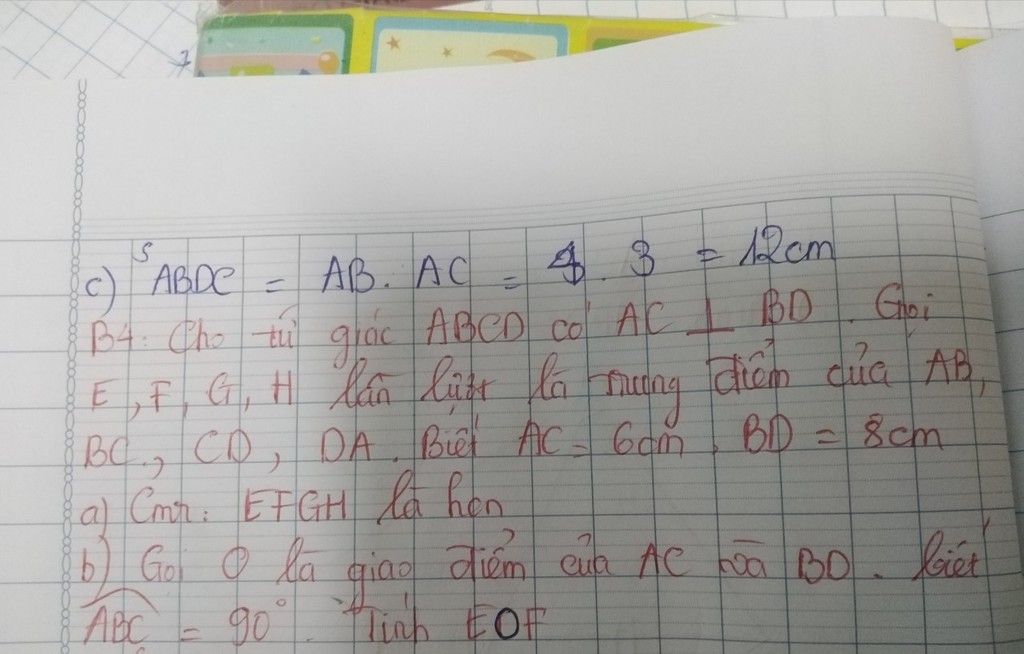 c) S ABDC = AB. AC = 4. 3 = 12cm
B4: Cho tứ giác ABCD có AC ⊥ BD. Gọi
E, F, G, H lần lượt là trung điểm của AB,
BC, CD, DA. Biết AC = 6cm, BD = 8cm
a) Cmr: EFGH là hcn
b) Gọi O là giao điểm của AC và BD. biết
ABC = 90°. Tính EOF